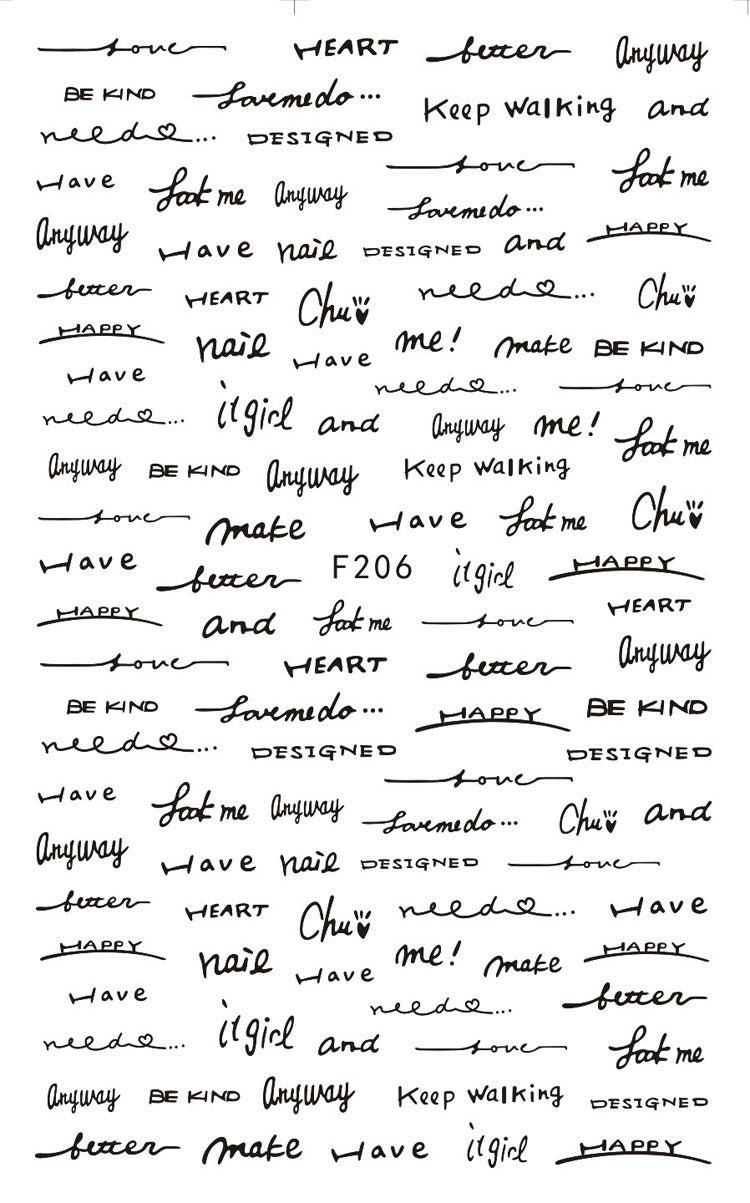 love HEART better Anyway
BE KIND Lovemedo... Keep walking and
need... DESIGNED
Have Look me Anyway love Look me
Lovemedo...
Anyway Have nail DESIGNED and HAPPY
better HEART Chu need... Chu
HAPPY nail Have me! make BE KIND
Have need... love
need... itgirl and Anyway me! Look me
Anyway BE KIND Anyway Keep walking
love make Have Look me Chu
Have better F206 itgirl HAPPY
HAPPY and Look me love HEART
love HEART better Anyway
BE KIND Lovemedo... HAPPY BE KIND
need... DESIGNED DESIGNED
love
Have Look me Anyway Lovemedo... Chu and
Anyway Have nail DESIGNED love
better HEART Chu need... Have
HAPPY nail Have me! make HAPPY
Have need... better
need... itgirl and love Look me
Anyway BE KIND Anyway Keep walking DESIGNED
better make Have itgirl HAPPY